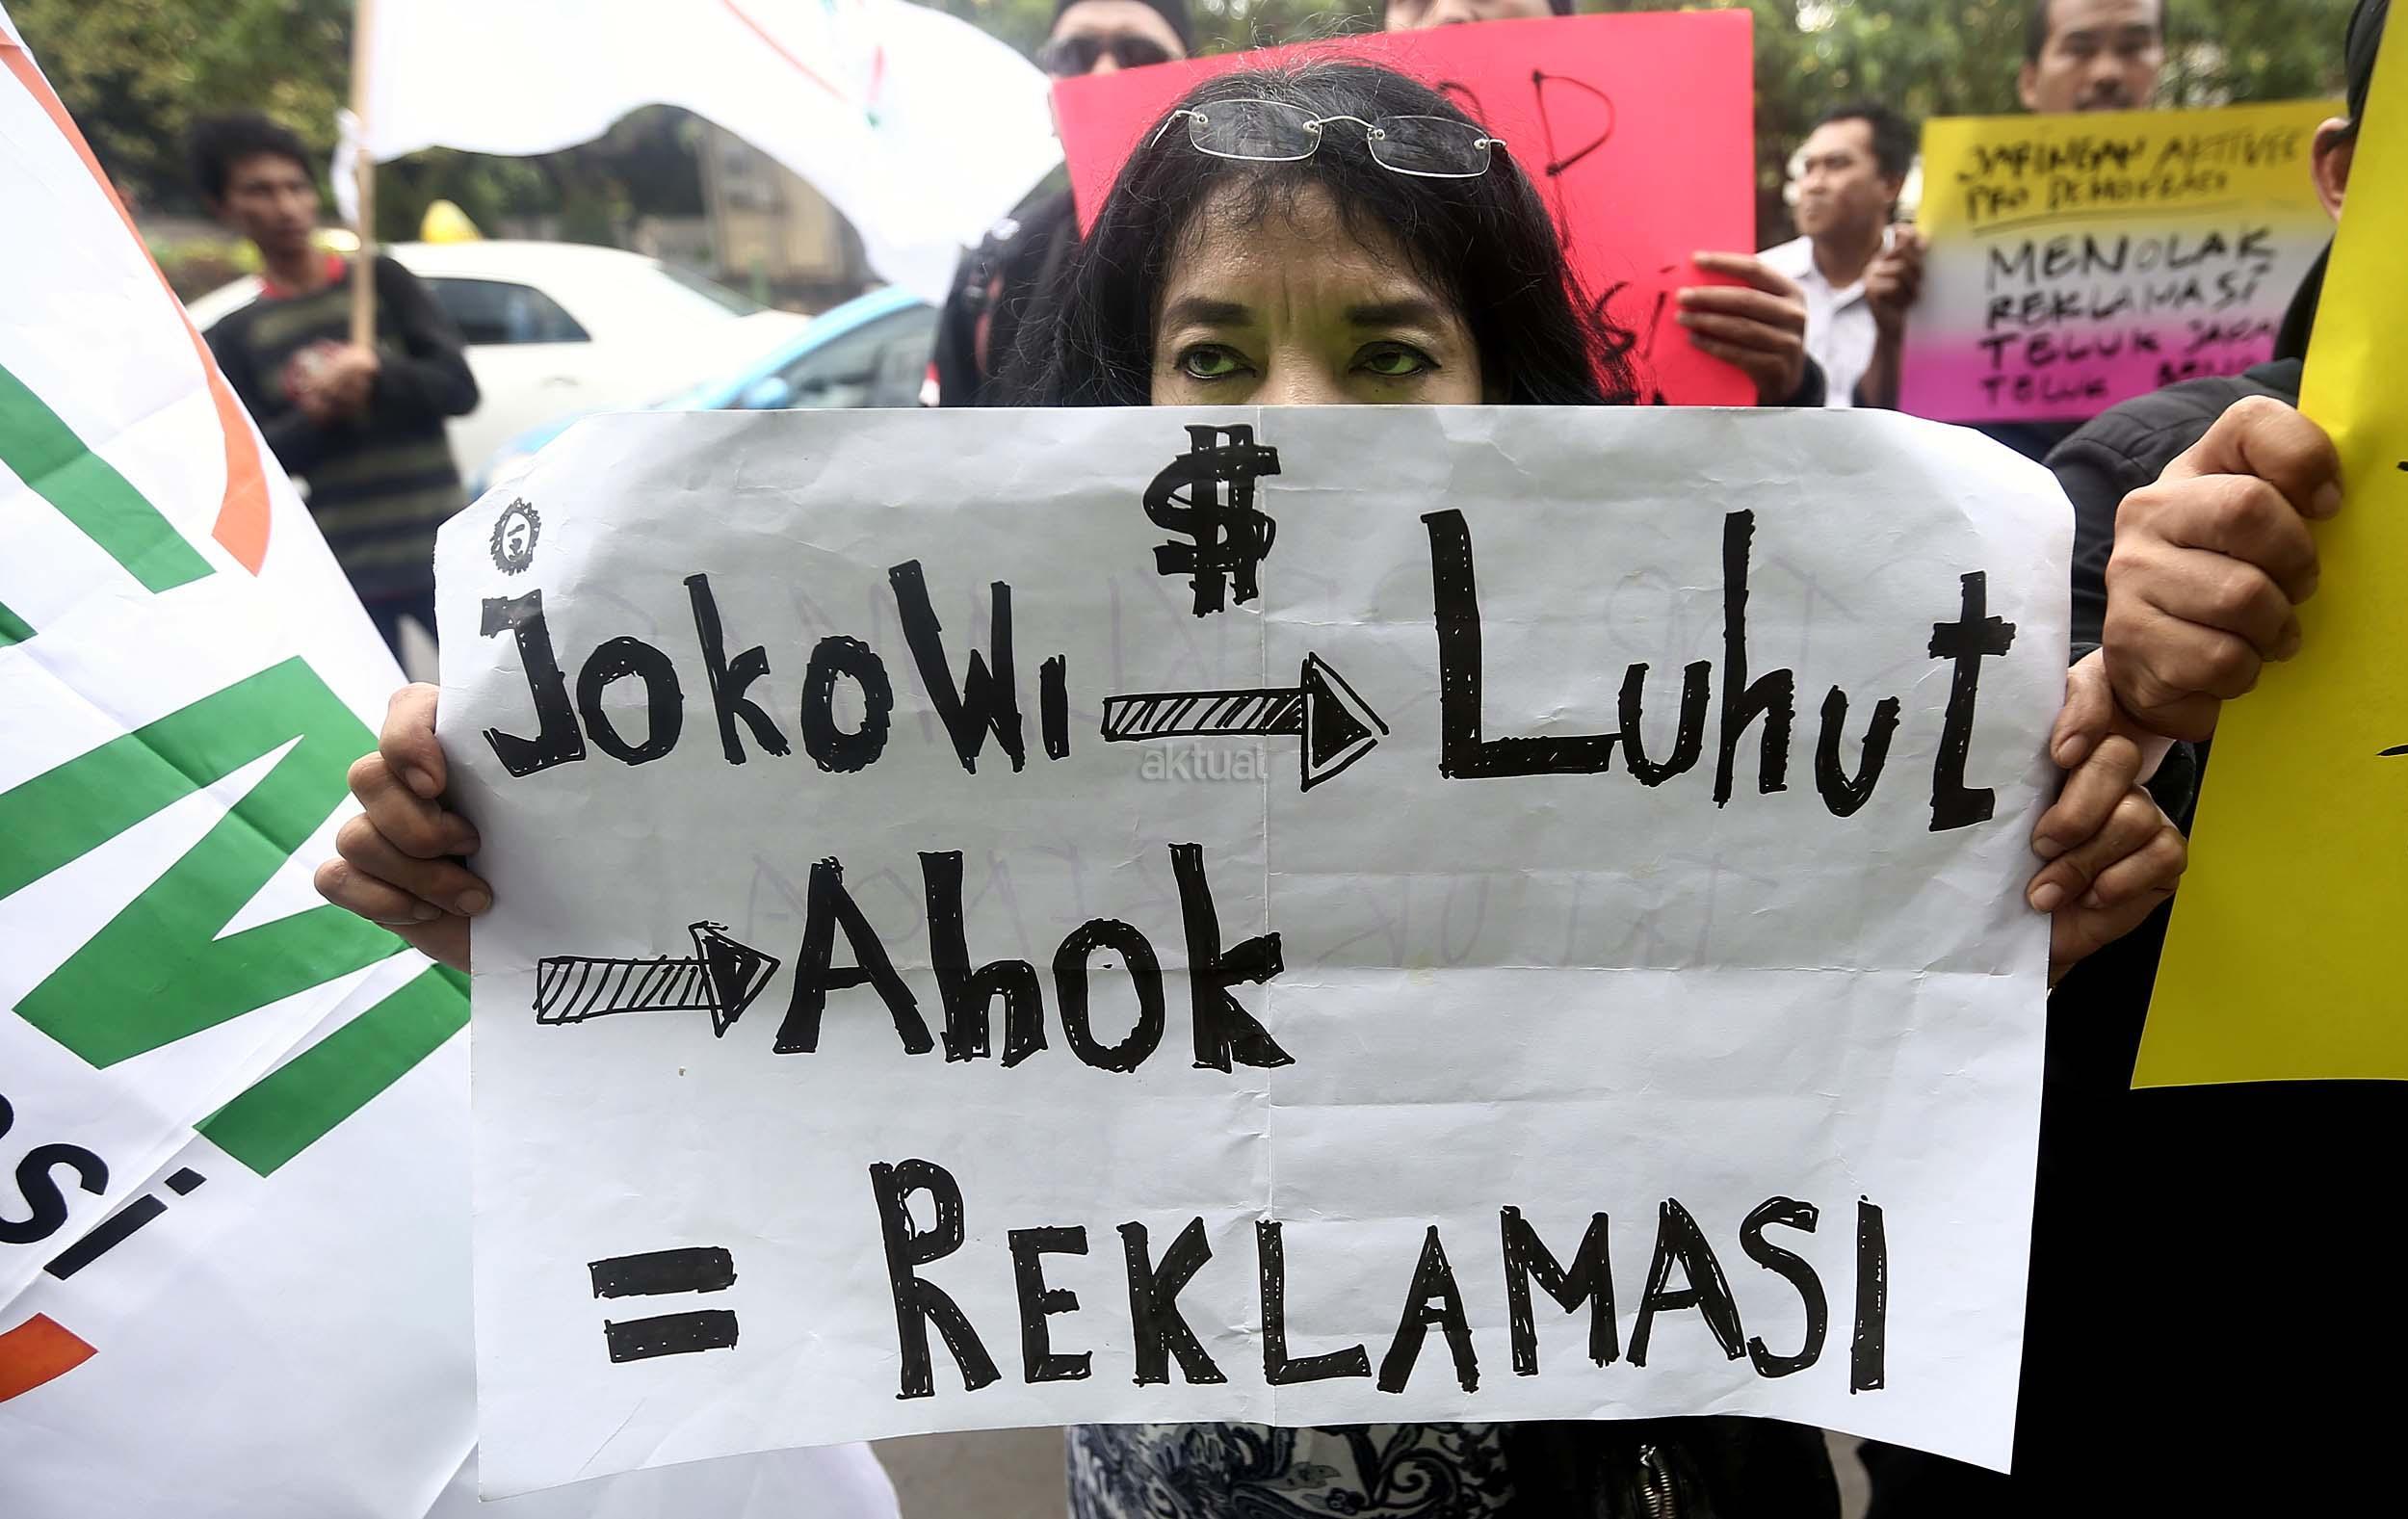 JARINGAN AKTIVIS
PRO DEMOKRASI
MENOLAK
REKLAMASI
TELUK JAKA
TELUK
$
JokoWi → Luhut
aktual
→ Ahok
= REKLAMASI
si